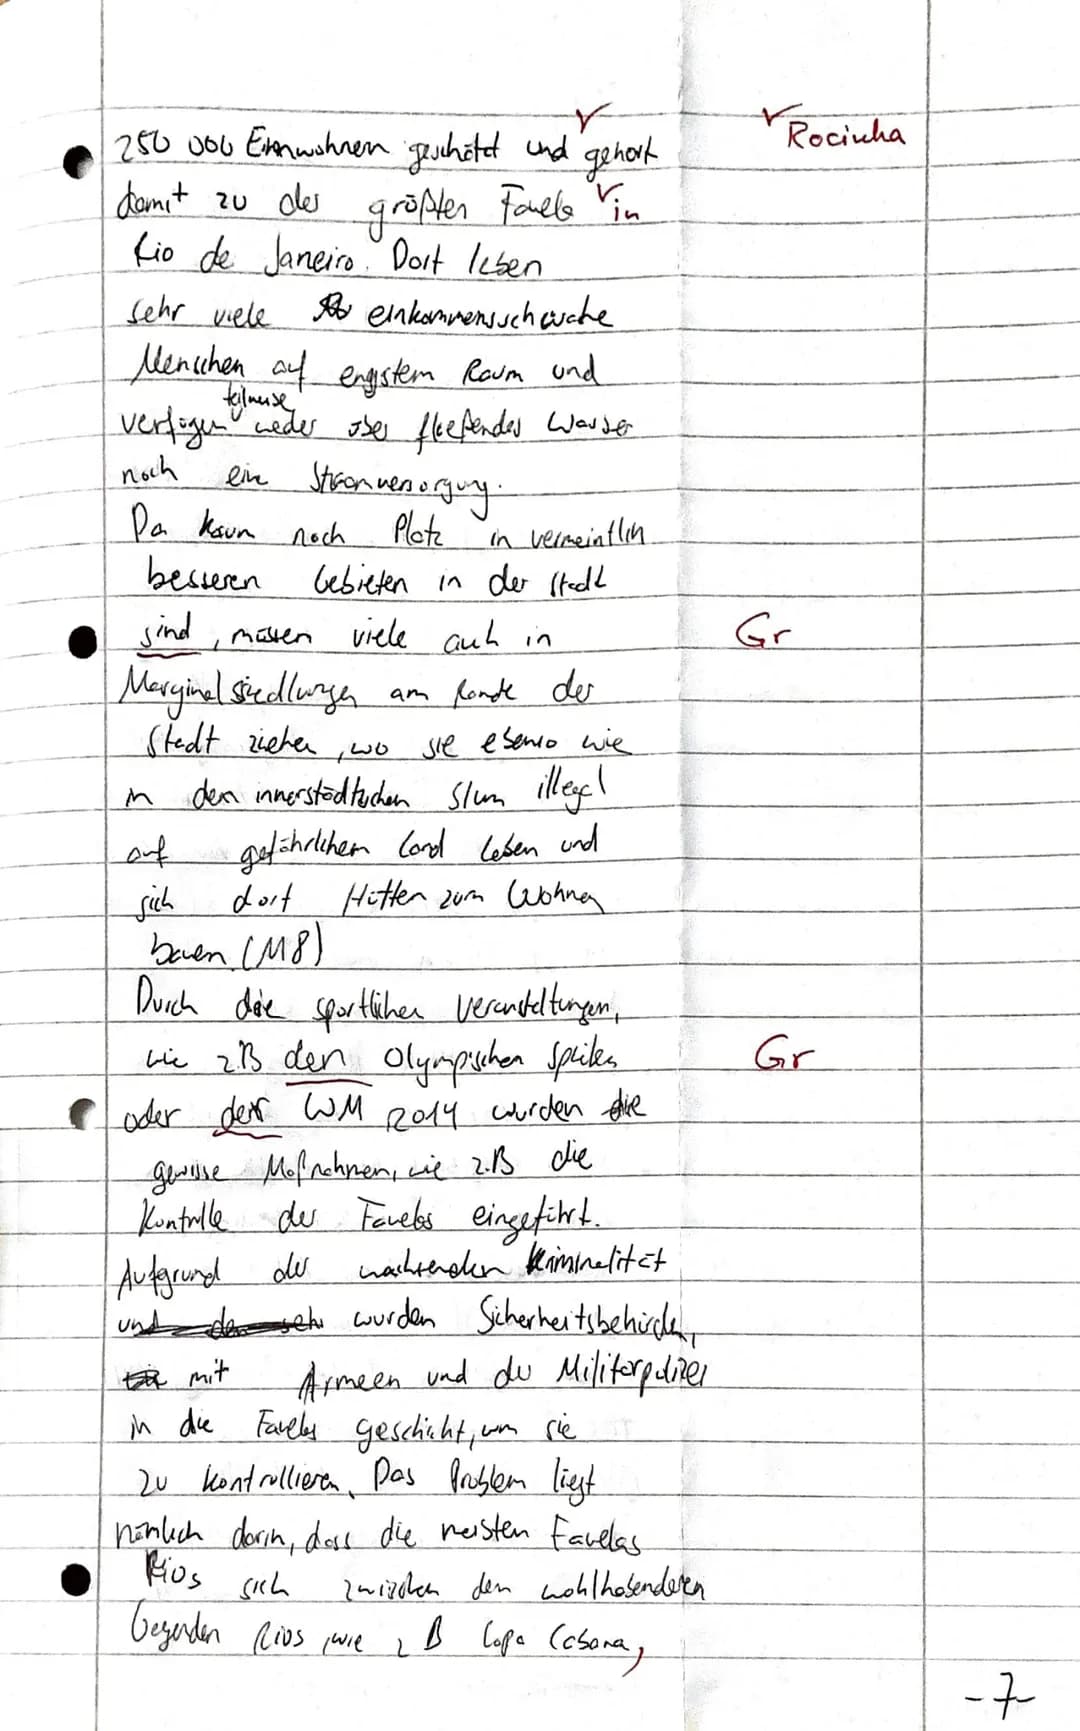 250 000 Einwohnern geschätzt und gehört
Rocinha
damit zu der größten Favela in
Rio de Janeiro. Dort leben
sehr viele einkommensschwache
Menschen auf engstem Raum und
teilweise
verfügen weder über fließendes Wasser
noch eine Stromversorgung.
Da kaum noch Platz in vermeintlich
besseren Gebieten in der Stadt
sind, müssen viele auch in
Gr
Marginalsiedlungen am Rande der
Stadt ziehen, wo sie ebenso wie
in den innerstädtischen Slum illegal
auf gefährlichem Land leben und
sich dort Hütten zum Wohnen
bauen (M8)
Durch die sportlichen Veranstaltungen,
wie z.B den Olympischen Spielen
Gr
oder der WM 2014 wurden
gewisse Maßnahmen, wie z.B die
Kontrolle der Favelas eingeführt.
Aufgrund der wachsenden Kriminalität
wurden Sicherheitsbehörden,
mit Armeen und der Militärpolizei
in die Favelas geschickt, um sie
zu kontrollieren. Das Problem liegt
nämlich darin, dass die meisten Favelas
Rios sich zwischen den wohlhabenderen
Gegenden Rios, wie z B Copa Cabana,
-7-